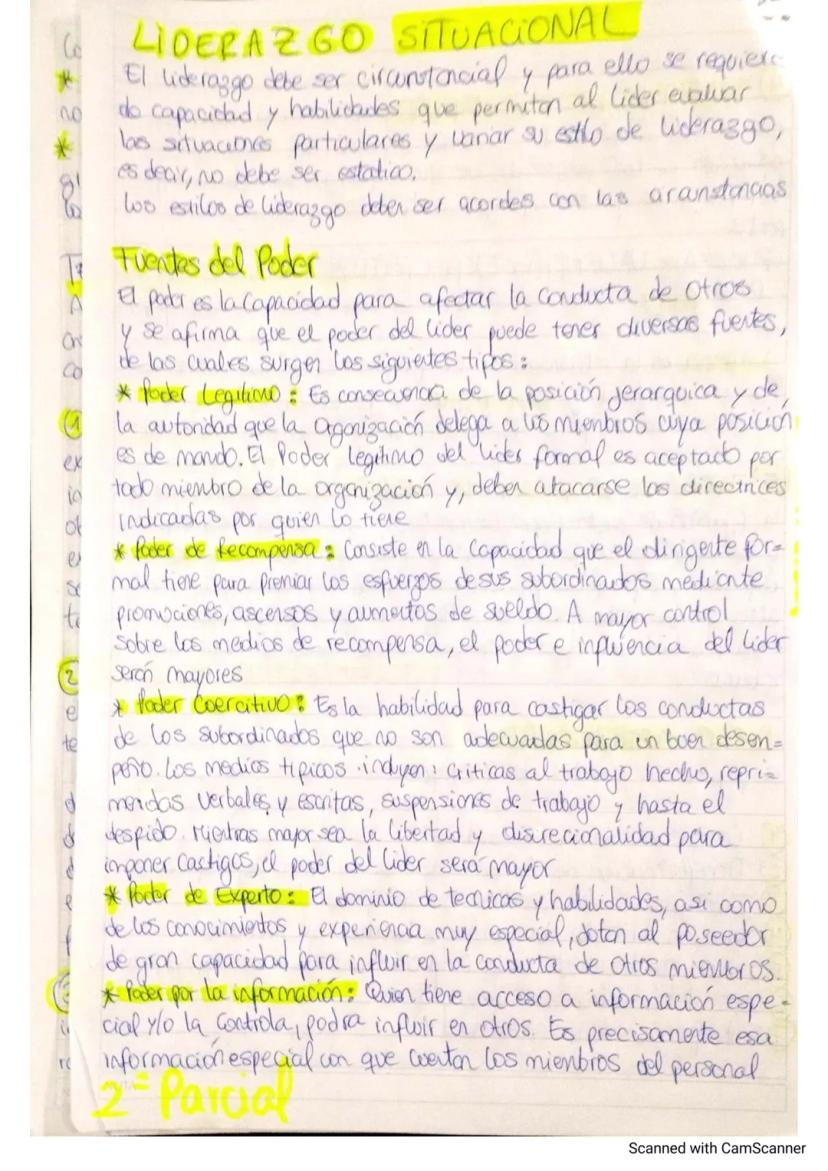 LIDERAZGO SITUACIONAL
El liderazgo debe ser circunstancial y para ello se requiere
da capacidad y habilidades que permitan al lider evaluar
las situaciones particulares y variar su estilo de liderazgo,
es decir, no debe ser estatico.
Los estilos de liderazgo deben ser acordes con las circunstancias
Fuentes del Poder
El poder es la capacidad para afectar la conducta de otros
y se afirma que el poder del lider puede tener diversas fuentes,
de las cuales surgen los siguientes tipos:
* Poder Legitimo: Es consecuencia de la posición jerarquica y de
la autoridad que la organización delega a los miembros cuya posición
es de mando. El Poder legitimo del lider formal es aceptado por
todo miembro de la organización y, deben atacarse las directrices
indicadas por quien lo tiene
* Poder de Recompensa: Consiste en la capacidad que el dirigente for=
mal tiene para premiar los esfuerzos de sus subordinados mediante
promociones, ascensos y aumentos de sueldo. A mayor control
sobre los medios de recompensa, el poder e influencia del lider
serán mayores
* Poder Coercitivo: Es la habilidad para castigar las conductas
de los subordinados que no son adecuadas para un buen desem=
peño. Los medios tipicos incluyen: criticas al trabajo hecho, repri=
mendas verbales y escritas, suspensiones de trabajo y hasta el
despido. Mientras mayor sea la libertad y discrecionalidad para
imponer castigos, el poder del lider será mayor
* Poder de Experto: El dominio de tecnicas y habilidades, asi como
de los conocimientos y experiencia muy especial, dotan al poseedor
de gran capacidad para influir en la conducta de otros miembros.
* Poder por la información: Quien tiene acceso a información espe-
cial y/o la controla, podra influir en otros. Es precisamente esa
información especial con que cuentan los miembros del personal
2º Parcial
Scanned with CamScanner